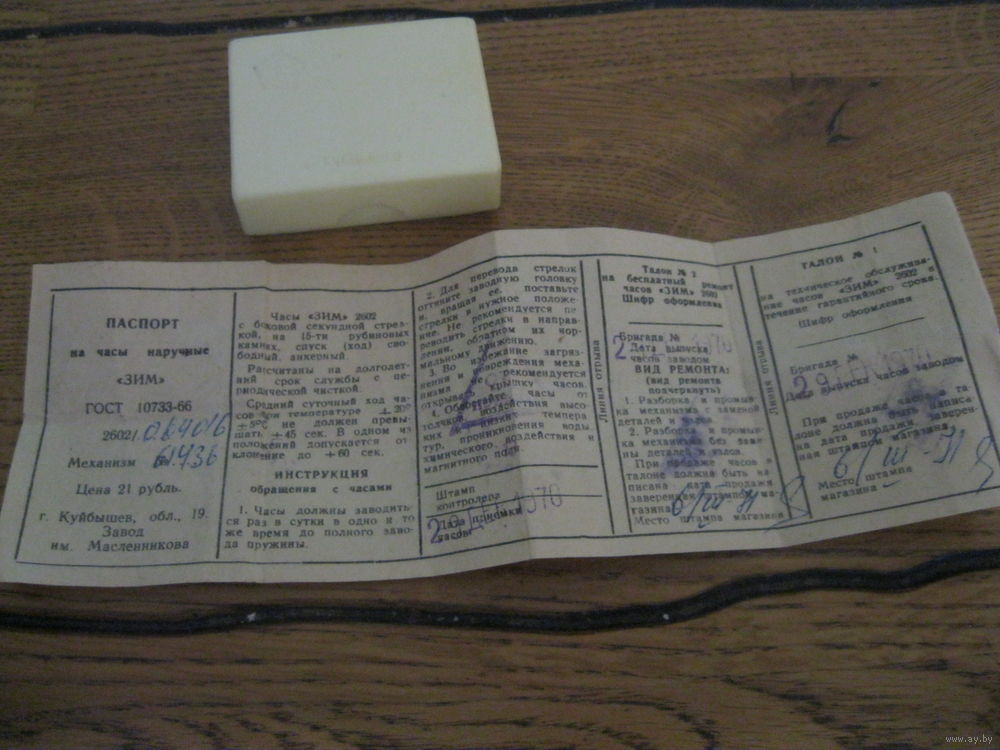 ПАСПОРТ
на часы наручные
«ЗИМ»
ГОСТ 10733-66
2602/
Механизм № 61936
Цена 21 рубль.
г. Куйбышев, обл., 19.
Завод
им. Масленникова
Часы «ЗИМ» 2602
с боковой секундной стрел-
кой, на 15-ти рубиновых
камнях, спуск (ход) сво-
бодный, анкерный.
Рассчитаны на долголет-
ний срок службы с пе-
риодической чисткой.
Средний суточный ход ча-
сов при температуре + 20°
±5°С не должен превы-
шать ±45 сек. В одном из
положений допускается от-
клонение до +60 сек.
ИНСТРУКЦИЯ
обращения с часами
1. Часы должны заводить-
ся раз в сутки в одно и то
же время до полного заво-
да пружины.
2. Для перевода стрелок
оттяните заводную головку
и, вращая ее, поставьте
стрелки в нужное положе-
ние. Не рекомендуется пе-
реводить стрелки в направ-
лении, обратном их нор-
мальному движению.
3. Во избежание загряз-
нения и повреждения меха-
низма не рекомендуется
открывать крышку часов.
4. Оберегайте часы от
толчков, воздействия высо-
ких и низких темпера-
тур, проникновения воды,
химического воздействия и
магнитного поля.
Штамп
контролера
Дата приемки
часов
1970
Линия отрыва
Талон № 2
на бесплатный ремонт
часов «ЗИМ» 2602
Шифр оформления
Бригада №
Дата выпуска
часов заводом
1970
ВИД РЕМОНТА:
(вид ремонта
подчеркнуть)
1. Разборка и промыв-
ка механизма с заменой
деталей и узлов.
2. Разборка и промыв-
ка механизма без заме-
ны деталей и узлов.
При продаже часов в
талоне должна быть на-
писана дата продажи,
заверенная штампом ма-
газина 6/III-71
Место штампа магазина
Линия отрыва
ТАЛОН № 1
на техническое обслужива-
ние часов «ЗИМ» 2602 в
течение гарантийного срока
Шифр оформления
Бригада №
Дата выпуска часов заводом
1970
При продаже часов в та-
лоне должна быть написа-
на дата продажи, заверен-
ная штампом магазина.
6/III-71
Место штампа
магазина
www.ay.by